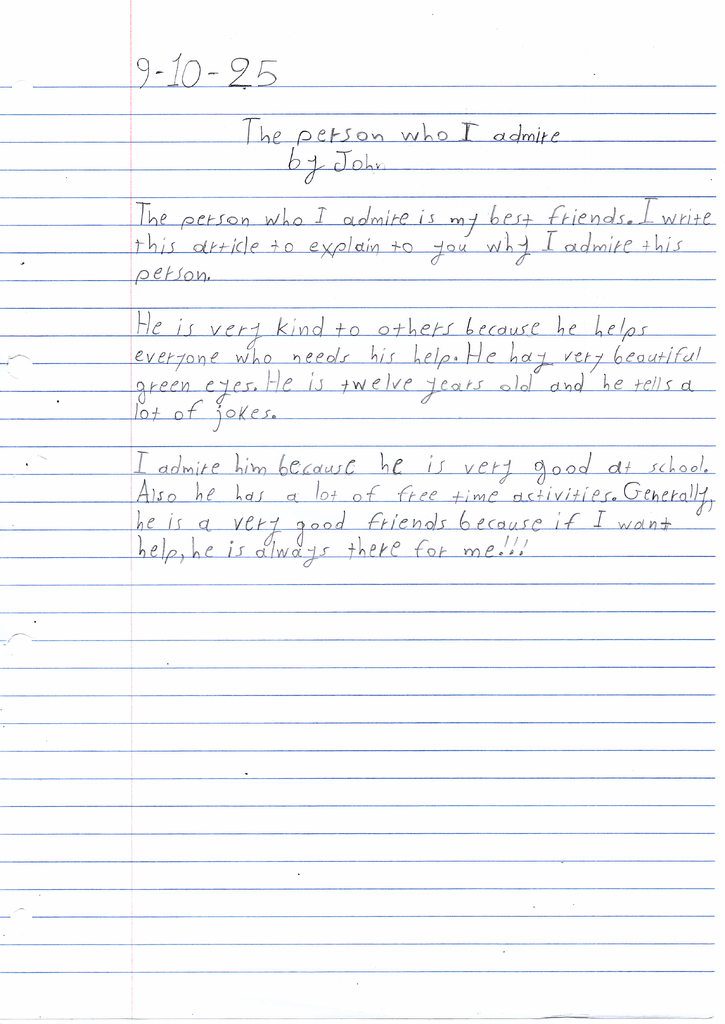 9-10-25
The person who I admire
by John
The person who I admire is my best friends. I write
this article to explain to you why I admire this
person.
He is very kind to others because he helps
everyone who needs his help. He haz very beautiful
green eyes. He is twelve years old and he tells a
lot of jokes.
I admire him because he is very good at school.
Also he has a lot of free time activities. Generally,
he is a very good friends because if I want
help, he is always there for me!!!